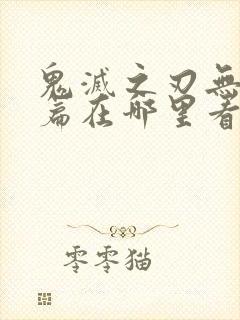 鬼滅之刃無
篇在哪里看
零零猫